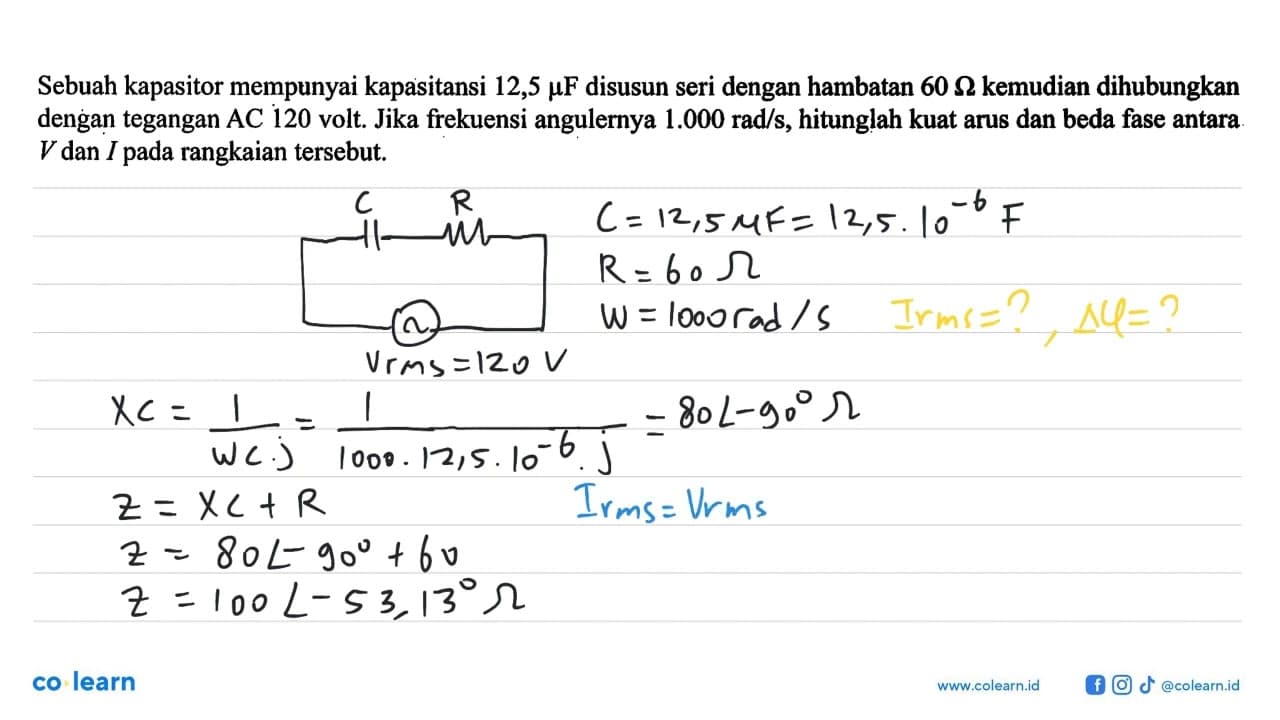 Sebuah kapasitor mempunyai kapasitansi 12,5 μF disusun seri dengan hambatan 60 Ω kemudian dihubungkan
dengan tegangan AC 120 volt. Jika frekuensi angulernya 1.000 rad/s, hitunglah kuat arus dan beda fase antara
V dan I pada rangkaian tersebut.
C R
C = 12,5 μF = 12,5 . 10^-6 F
R = 60 Ω
W = 1000 rad/s Irms = ? , Δφ = ?
Vrms = 120 V
XC = 1/(WC.j) = 1/(1000 . 12,5 . 10^-6 . j) = 80∠-90° Ω
Z = XC + R Irms = Vrms
Z = 80∠-90° + 60
Z = 100∠-53,13° Ω
co learn www.colearn.id @colearn.id